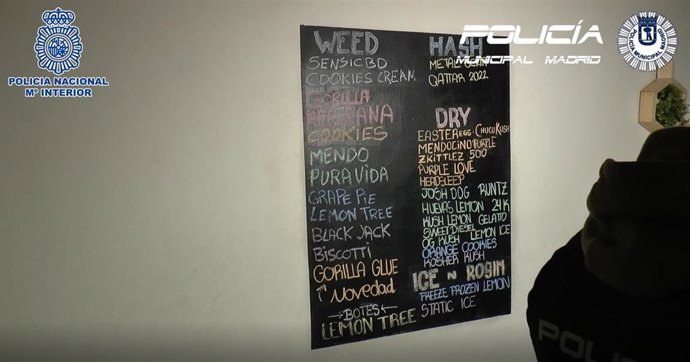 POLICIA NACIONAL
Mº INTERIOR
POLICÍA
MUNICIPAL MADRID
WEED
SENSICBD
COOKIES CREAM
GORILLA
COOKIES
MENDO
PURA VIDA
GRAPE PIE
LEMON TREE
BLACK JACK
BISCOTTI
GORILLA GLUE
NOVEDAD
BOTES
LEMON TREE
HASH
METAL
QATTAR 2022
DRY
EASTER EGG · CHUCU KUSH
MENDOCINO PURPLE
ZKITTLEZ 500
PURPLE LOVE
HEADSLEEP
JOSH DOG RUNTZ
HUEVAS LEMON 24K
KUSH LEMON GELATO
SWEET DIESEL
OG KUSH LEMON ICE
ORANGE COOKIES
KOSHER KUSH
ICE N ROSIN
FREEZE FROZEN LEMON
STATIC ICE
POLICÍA